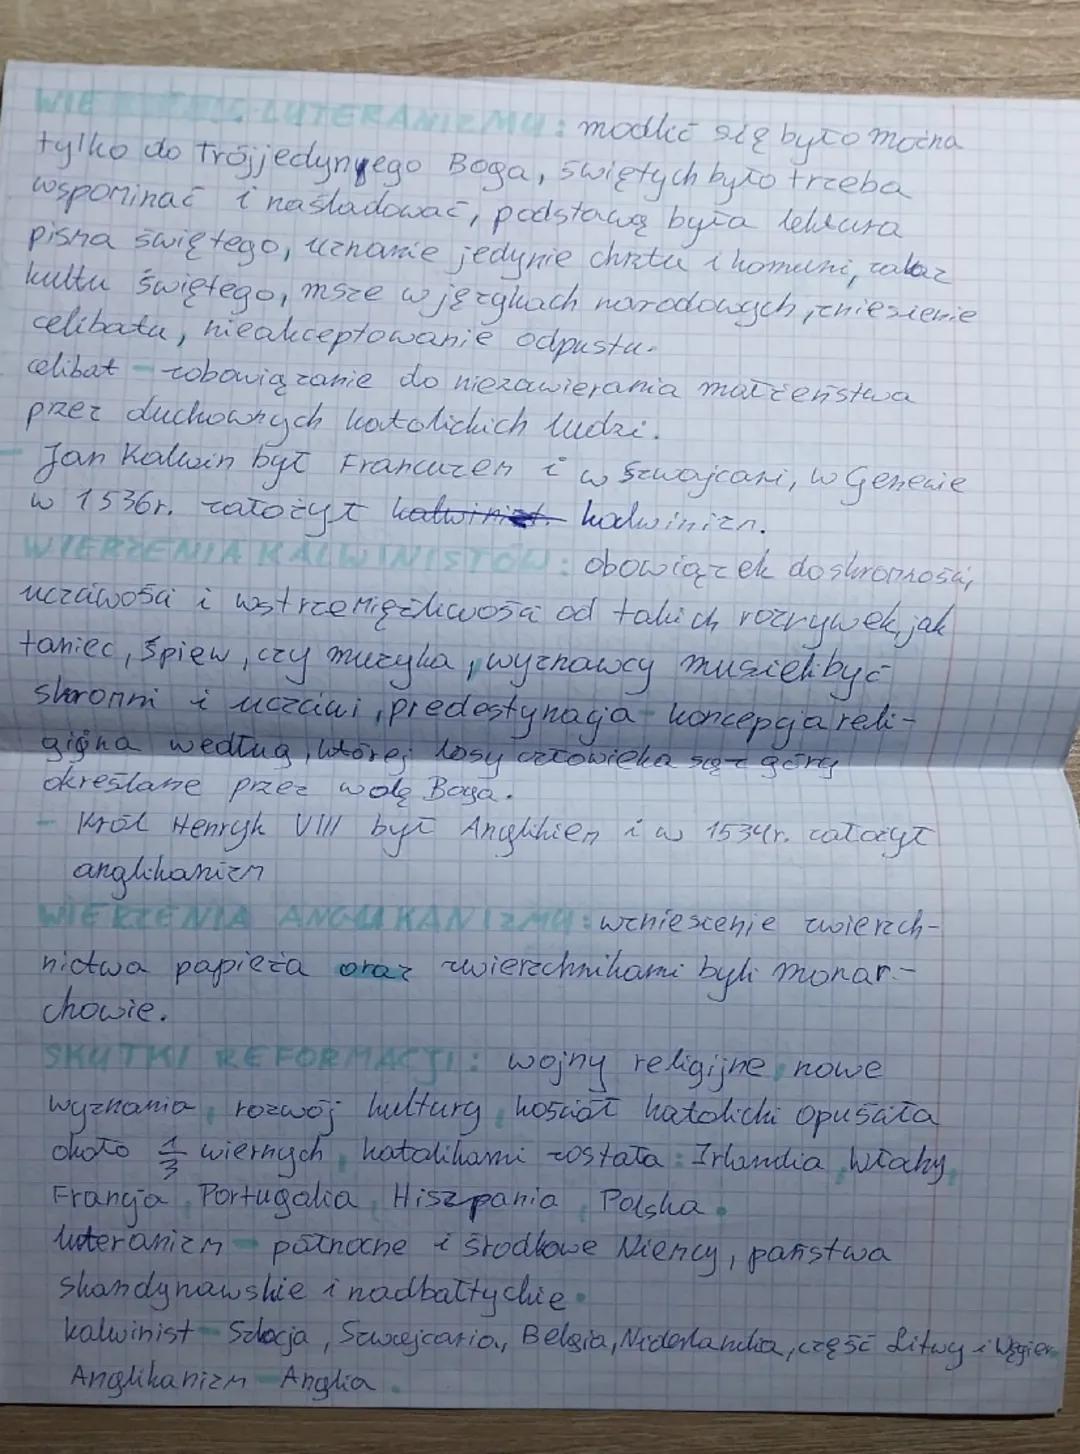 LUTERANIZMU: modlić się było można
tylko do Trójjedynyego Boga, świętych było trzeba
wspominać i naśladować, podstawą była lektura
pisma świętego, uznanie jedynie chrztu i komuni, zakaz
kultu świętego, msze w językach narodowych, zniesienie
celibatu, nieakceptowanie odpustu.
celibat - zobowiązanie do niezawierania małżeństwa
przez duchownych katolickich ludzi.
- Jan Kalwin był Francuzem i w Szwajcari, w Genewie
w 1536r. założył kalwinizm.
WIERZENIA KALWINISTÓW: obowiązek do skromności,
uczciwości i wstrzemięźliwości od takich rozrywek, jak
taniec, śpiew, czy muzyka, wyznawcy musieli być
skromni i uczciwi, predestynacja - koncepcja reli-
gijna według, której losy człowieka są z góry
określane przez wolę Boga.
- Król Henryk VIII był Anglikiem i w 1534r. założył
anglikanizm
WIERZENIA ANGLIKANIZMU: wzniesienie zwierzch-
nictwa papieża oraz zwierzchnikami byli monar-
chowie.
SKUTKI REFORMACJI: wojny religijne, nowe
wyznania, rozwój kultury, kościół katolicki opuściła
około 1/3 wiernych, katolikami została: Irlandia, Włochy,
Francja, Portugalia, Hiszpania, Polska.
luteranizm - północne i środkowe Niemcy, państwa
skandynawskie i nadbałtyckie.
kalwinist - Szkocja, Szwajcaria, Belgia, Niderlandia, część Litwy i Węgier.
Anglikanizm - Anglia.